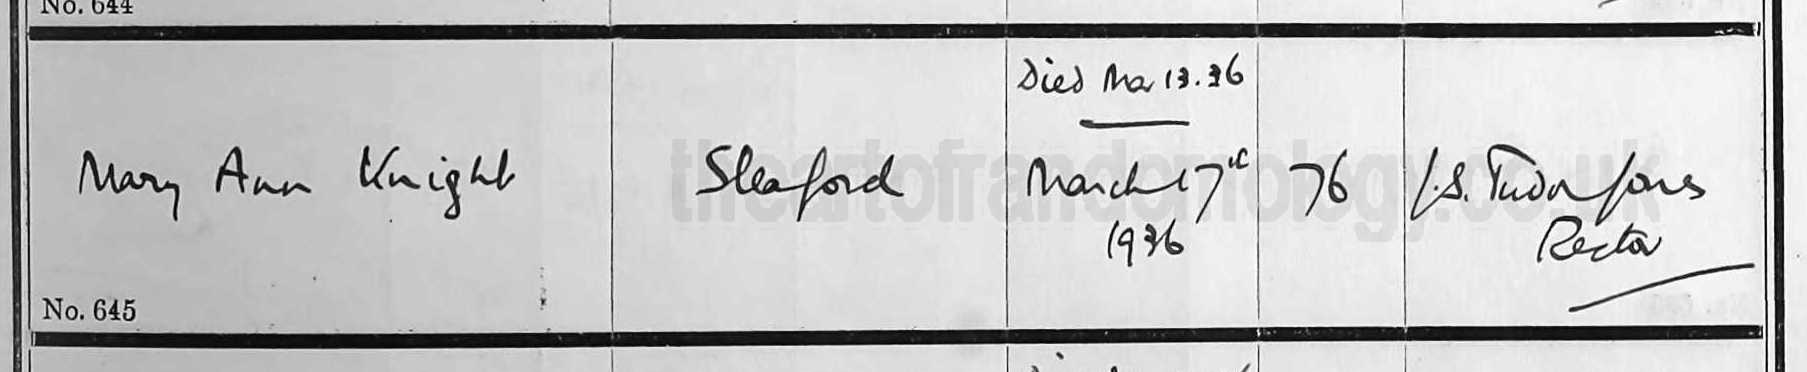 No. 644
Died Mar 13.36
Mary Ann Knight Sleaford March 17th 76 J.S. Tudor Jones
1936 Rector
No. 645
theartofrandomology.co.uk